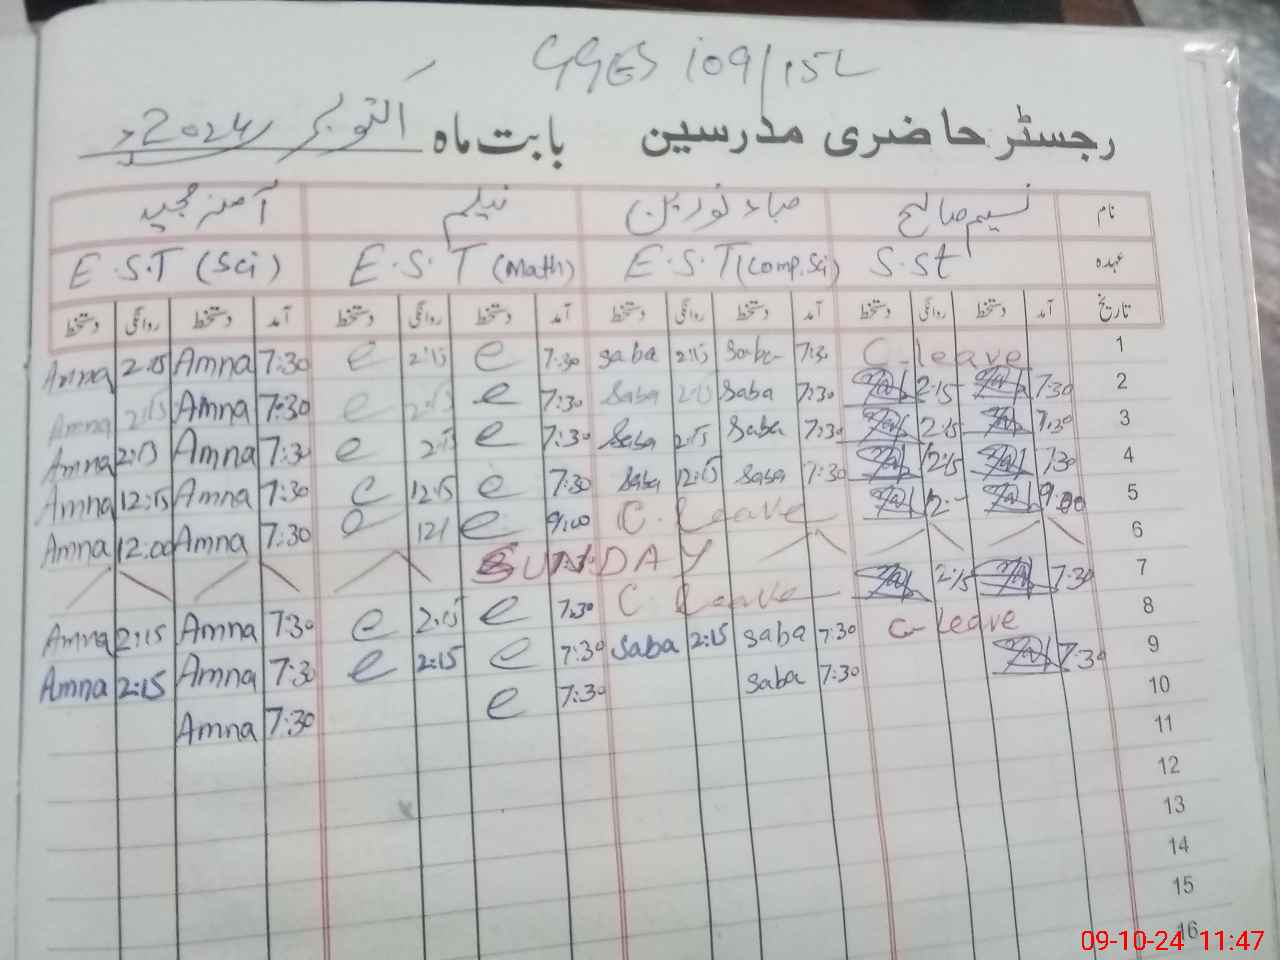 GGES 109/15L
رجسٹر حاضری مدرسین بابت ماہ اکتوبر 2024ء
نام نسیم صالح صباء نورین نیلم آمنہ مجید
عہدہ S.St E.S.T (Comp.Sci) E.S.T (Math) E.S.T (Sci)
تاریخ آمد دستخط روانگی دستخط آمد دستخط روانگی دستخط آمد دستخط روانگی دستخط آمد دستخط روانگی دستخط
1 C.leave 7:30 Saba 2:15 Saba 7:30 e 2:15 e 7:30 Amna 2:15 Amna
2 7:30 2:15 7:30 Saba 2:15 Saba 7:30 e 2:15 e 7:30 Amna 2:15 Amna
3 7:30 2:15 7:30 Saba 2:15 Saba 7:30 e 2:15 e 7:30 Amna 2:15 Amna
4 7:30 12:15 7:30 Saba 12:15 Saba 7:30 e 12:15 e 7:30 Amna 12:15 Amna
5 9:00 C.leave 9:00 e e 7:30 Amna 12:00 Amna
6 SUNDAY
7 7:30 2:15 C.leave 7:30 e 2:15 e 7:30 Amna 2:15 Amna
8 C-leave 7:30 Saba 2:15 Saba 7:30 e 2:15 e 7:30 Amna 2:15 Amna
9 7:30 7:30 Saba 7:30 e 7:30 Amna
10
11
12
13
14
15
16
09-10-24 11:47